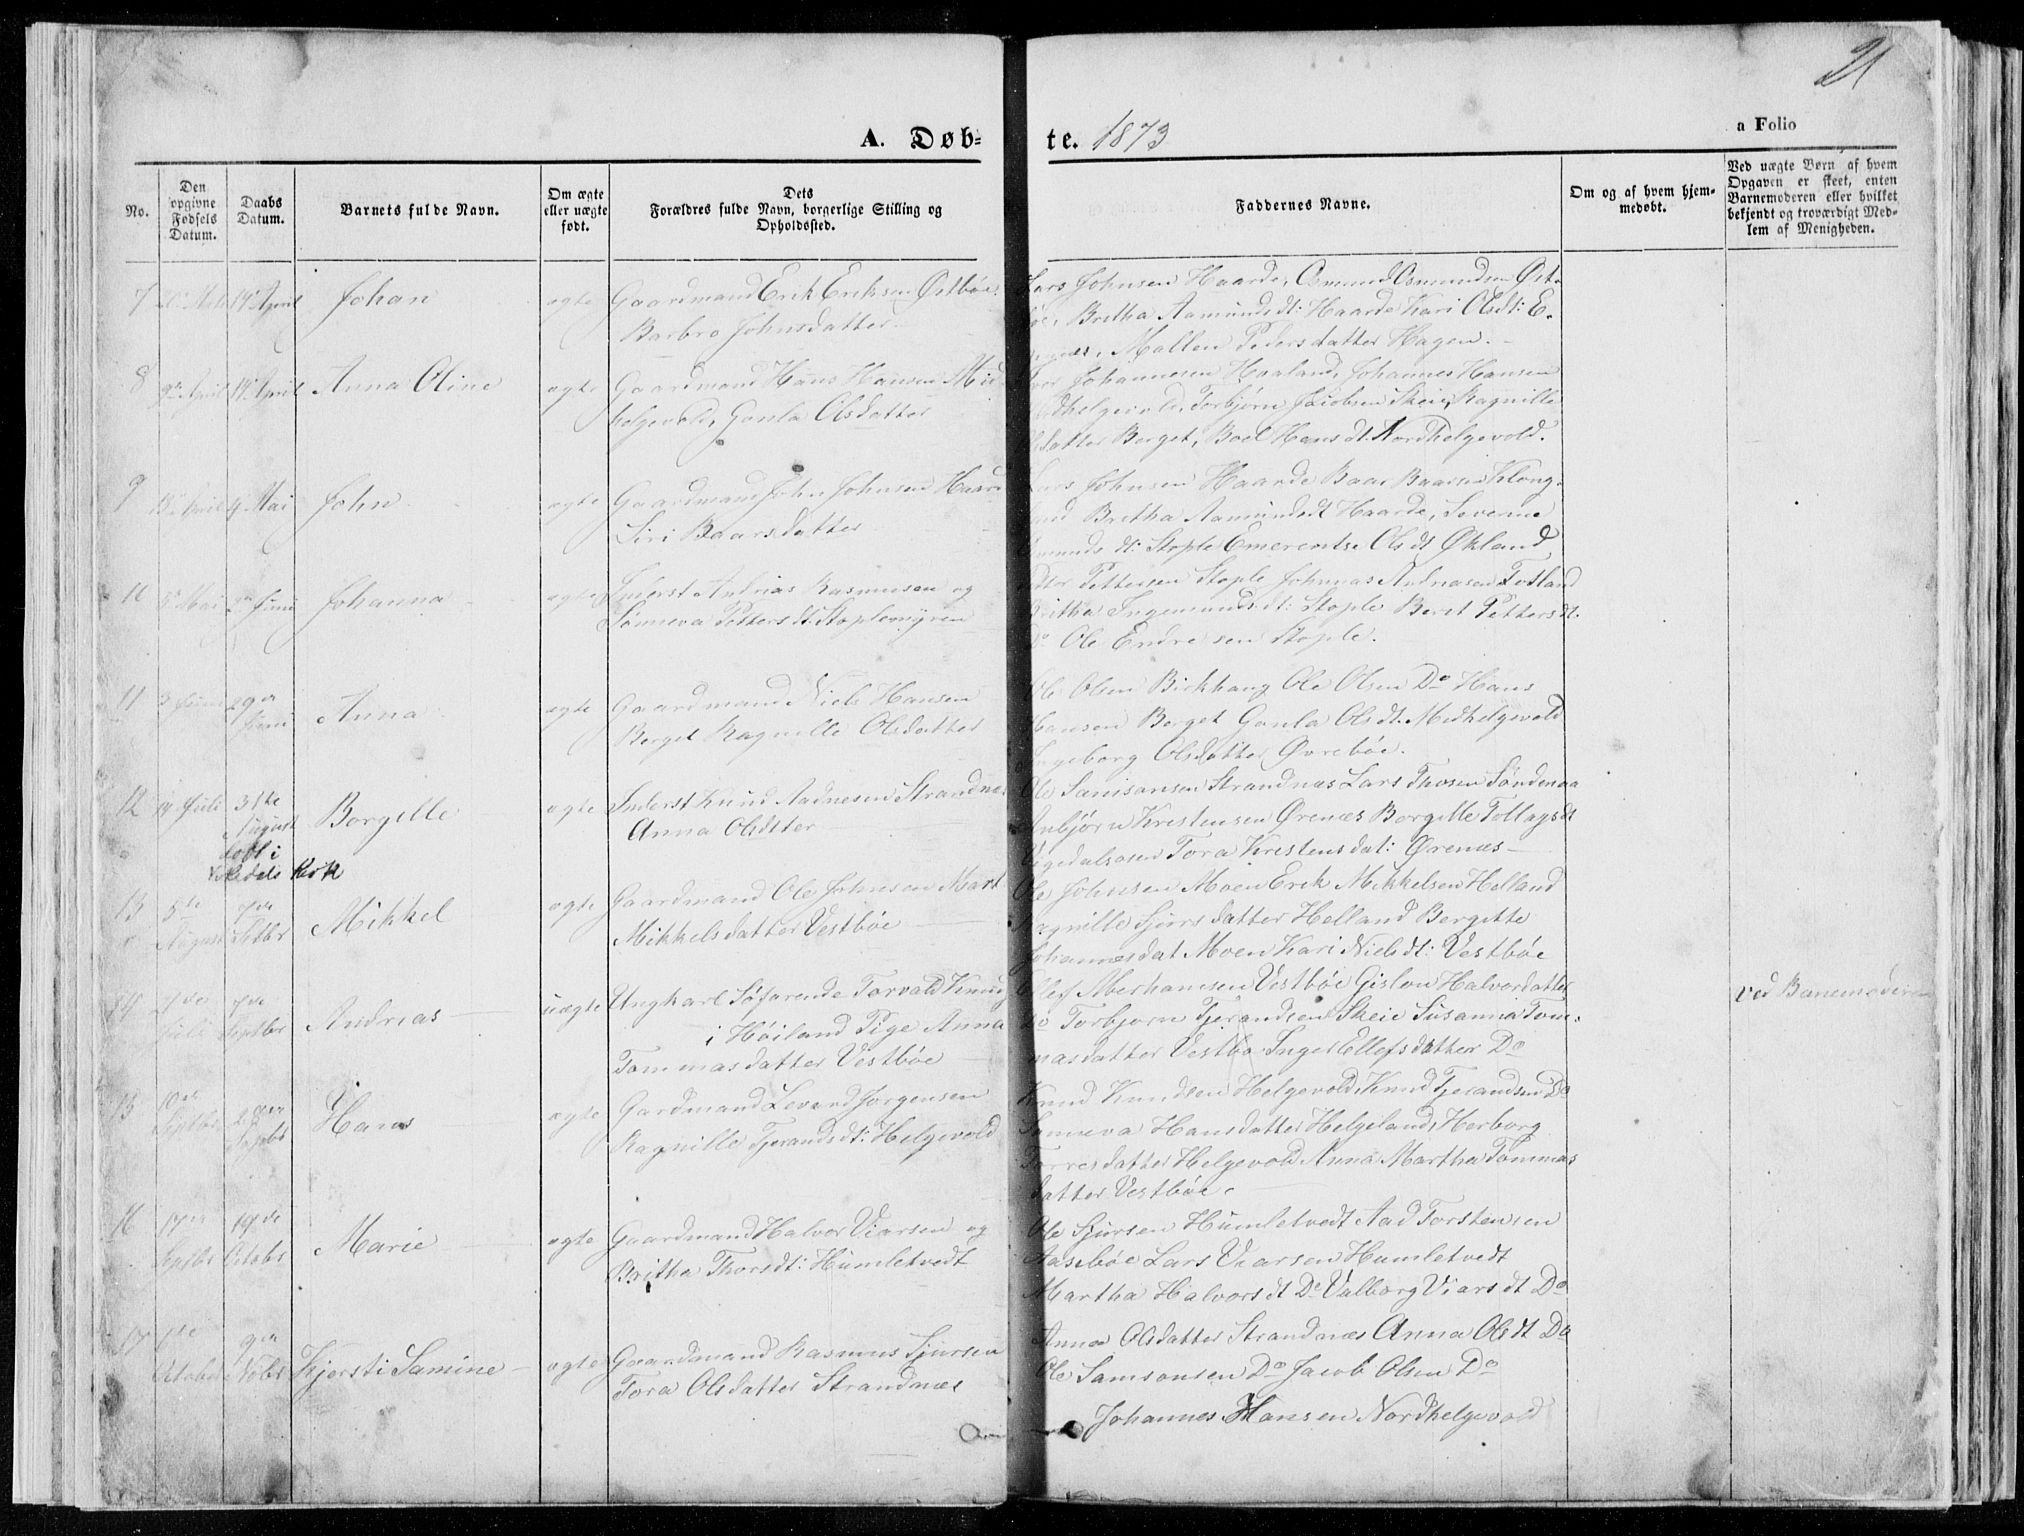 21
A. Døb-
te. 1873
a Folio
No.
Den opgivne Fødsels Datum.
Daabs Datum.
Barnets fulde Navn.
Om ægte eller uægte født.
Dets Forældres fulde Navn, borgerlige Stilling og Opholdssted.
Faddernes Navne.
Om og af hvem hjemmedøbt.
Ved uægte Børn af hvem Opgaven er skeet, enten Barnemoderen eller hvilket bekjendt og troværdigt Medlem af Menigheden.
7 14 April Johan ægte Gaardmand Erik Eriksen Østbøe
Barbro Johnsdatter
Lars Johnsen Haarde, Osmund Osmundsen Øst-
bøe, Britha Aamundsdt: Haarde Kari Olsdt: E-
Mallen Pedersdatter Hagen.
8 9de April 14 April Anna Oline ægte Gaardmand Hans Hansen Mid
helgevold, Gonla Olsdatter
Johannesen Haaland, Johannes Hansen
Midhelgevold, Torbjørn Jacobsen Skeie, Ragnille
Olsdatter Berget, Boel Hansdt. Nordhelgevold.
9 April 4 Mai John ægte Gaardmand John Johnsen Haard
Siri Baarsdatter
Lars Johnsen Haarde Baar Baarsen Klong-
land Britha Aamundsdt Haarde, Severine
dt: Stople Emerentse Olsdt Økland
10 5 Mai Juni Johanna ægte Inderst Andrias Rasmusen og
Sønneva Pettersdt: Stoplemyren
Petter Pettersen Stople Johnnas Andriasen Totland
Britha Ingemundsdt: Stople Beret Pettersdt.
Do Ole Endresen Stople.
11 3 Juni 29de Juni Anna ægte Gaardmand Niels Hansen
Berget Ragnille Olsdatter
Ole Olsen Birkhaug Ole Olsen Do Hans
Hansen Berget Gonla Olsdt. Midhelgevold
Ingeborg Olsdatter Øvrebøe.
12 14 Juli 31te August Borgille ægte Inderst Knud Aadnesen Strandnæs
døbt i
Vikedals Kirk
Anna Olsdtter
Ole Samsonsen Strandnæs Lars Thosen Søndenaa
Anbjørn Kristensen Ørenæs Borgille Tollagsdt
Øgedalsosen Tora Kristensdat: Ørenæs
13 5te August 7de Septbr Mikkel ægte Gaardmand Ole Johnsen Mart
Mikkelsdatter Vestbøe
Ole Johnsen Moen Erik Mikkelsen Helland
Ragnille Sjursdatter Helland Bergitte
Johannesdat Moen Kari Nielsdt: Vestbøe
14 Juli 7de Septbr Andrias uægte Ungkarl Søfarende Torvald Knud
i Høiland Pige Anna
Tommasdatter Vestbøe
Ellef Aberhamsen Vestbøe Gislou Halvordatter
Do Torbjorn Tjerandsen Skeie Susanna Tom-
masdatter Vestbø Inger Ellefsdatter Do
Ved Barnemoderen
15 10de Septbr Septbr Hans ægte Gardmand Levard Jørgensen
Ragnille Tjerandsdt: Helgevold
Knud Knudsen Helgevold Knud Tjerandsen Do
Sønneva Hansdatter Helgeland, Herborg
Torresdatter Helgevold Anna Martha Tommas
datter Vestbøe.
16 17de Septbr 19de Octobr Marie ægte Gaardmand Halvor Viarsen og
Britha Thorsdt: Humletvedt
Ole Sjursen Humletvedt Aad Torstensen
Aasebøe Lars Viarsen Humletvedt
Martha Halvorsdt Do Valborg Viarsdt Do
17 1te Octobr 9de Nobr Kjersti Samine ægte Gaardmand Rasmus Sjursen
Tora Olsdatter Strandnæs
Anna Olsdatter Strandnæs Anna Olsdt Do
Ole Samsonsen Do Jacob Olsen Do
Johannes Hansen Nordhelgevold